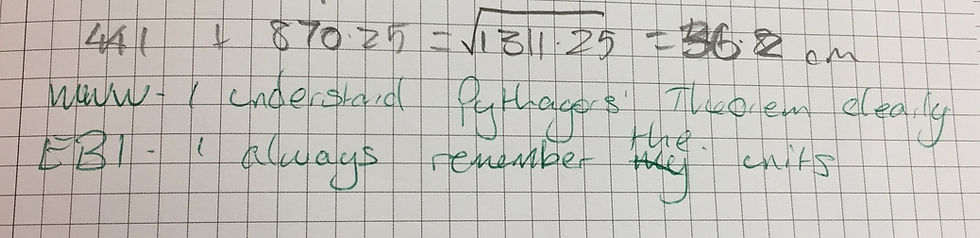 441 + 870.25 = √1311.25 = 36.2 cm
WWW - I understand Pythagors' Theorem clearly
EBI - I always remember the units